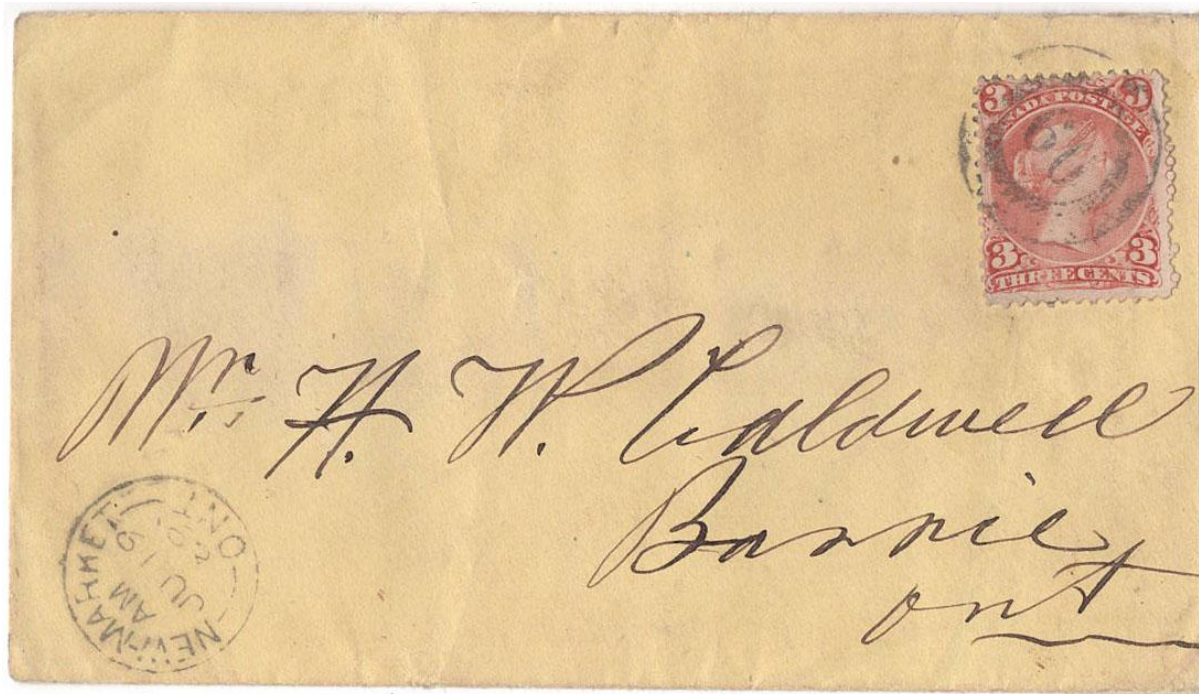 3 CANADA POSTAGE 3
3 3
THREE CENTS
Mr. H. W. Caldwell
Barrie
Ont
NEWMARKET ONT
AM
JU